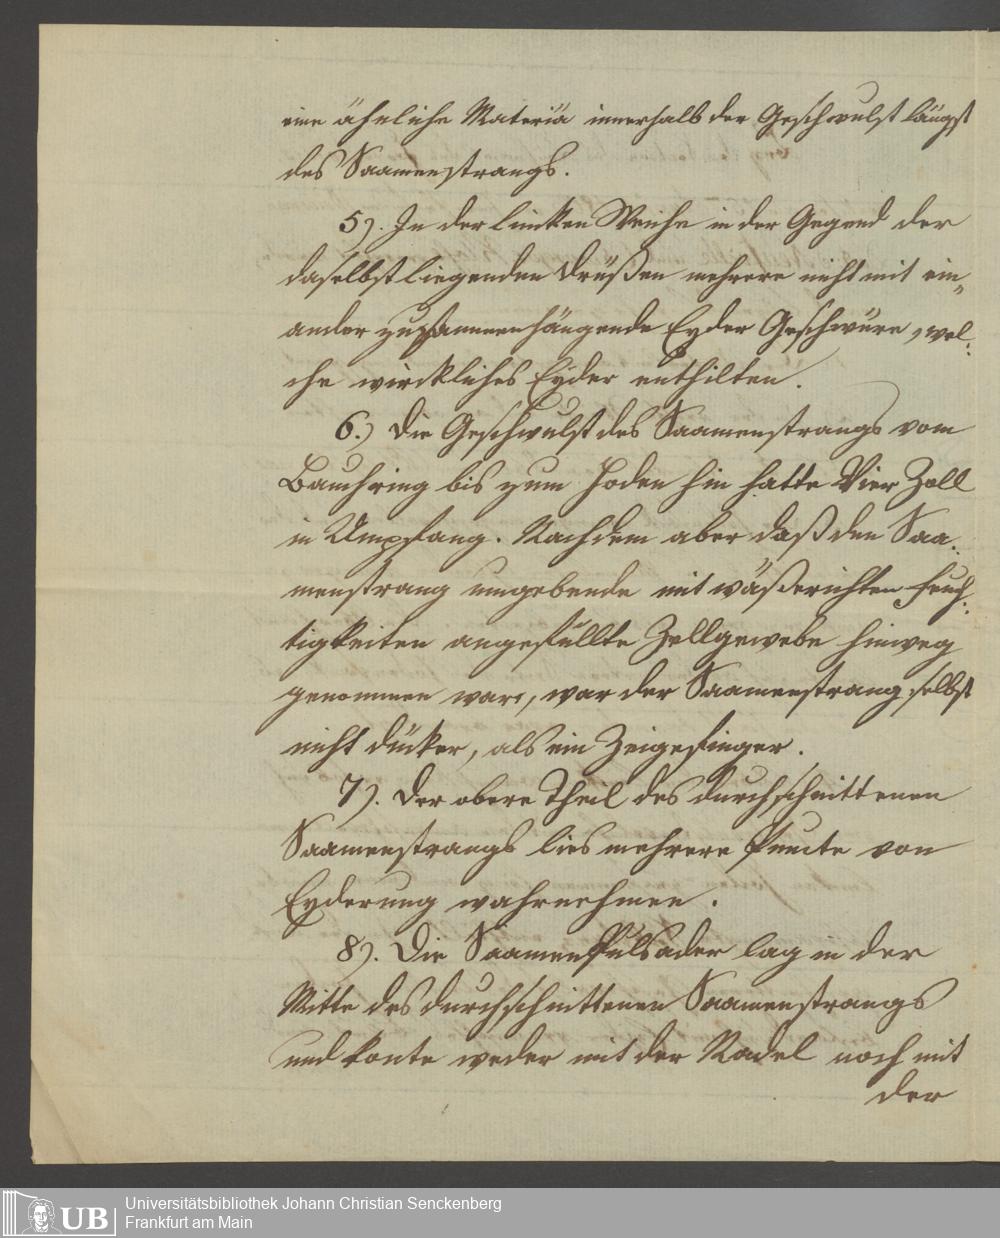 eine ähnliche Materia innerhalb der Geschwulst längst
des Saamenstrangs.
5). In der lincken Weiche in der Gegend der
daselbst liegenden Drüßen mehrere nicht mit ein„
ander zusammenhängende Eyder Geschwüre, wel:
che wirckliches Eyder enthilten.
6.) Die Geschwulst des Saamenstrangs vom
Bauchring bis zum Hoden hin hatte Vier Zoll
in Umpfang. Nachdem aber daß den Saa:
menstrang umgebende mit wäßerichten Feuch:
tigkeiten angefüllte Zellgewebe hinweg
genommen ware, war der Saamenstrang selbst
nicht dücker, als ein Zeigefinger.
7). Der obere Theil des durchschnittenen
Saamenstrangs lies mehrere Puncte von
Eyderung wahrnehmen.
8). Die Saamen Pulsader lag in der
Mitte des durchschnittenen Saamenstrangs
und konte weder mit der Nadel noch mit
der
UB
Universitätsbibliothek Johann Christian Senckenberg
Frankfurt am Main